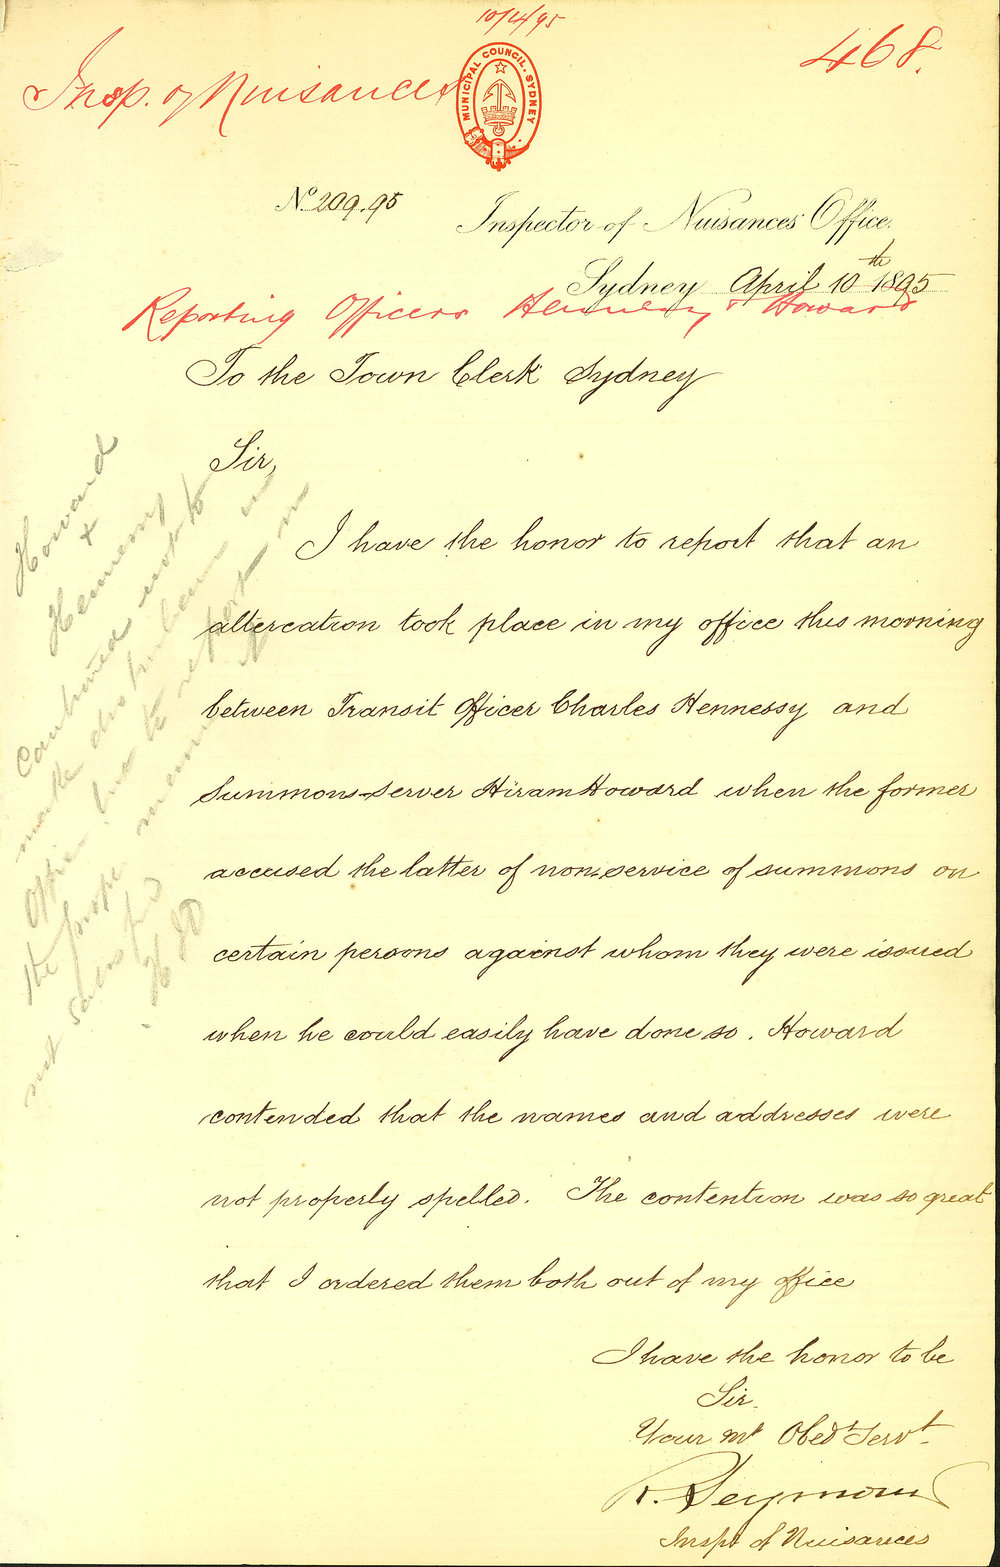 10/4/95
468.
Insp. of Nuisances
MUNICIPAL COUNCIL. SYDNEY
No. 209.95
Inspector of Nuisances' Office.
Sydney April 10th 1895
Reporting Officers Hennessy & Howard
To the Town Clerk Sydney
Sir,
I have the honor to report that an
altercation took place in my office this morning
between Transit Officer Charles Hennessy and
Summons-server Hiram Howard when the former
accused the latter of non-service of summons on
certain persons against whom they were issued
when he could easily have done so. Howard
contended that the names and addresses were
not properly spelled. The contention was so great
that I ordered them both out of my office
I have the honor to be
Sir.
Your Mt Obedt Servt.
R. Seymour
Inspr of Nuisances
Howard
+
Hennessy
Cautioned not to
make disturbance in
Office, but to report in
the proper manner if
not satisfied